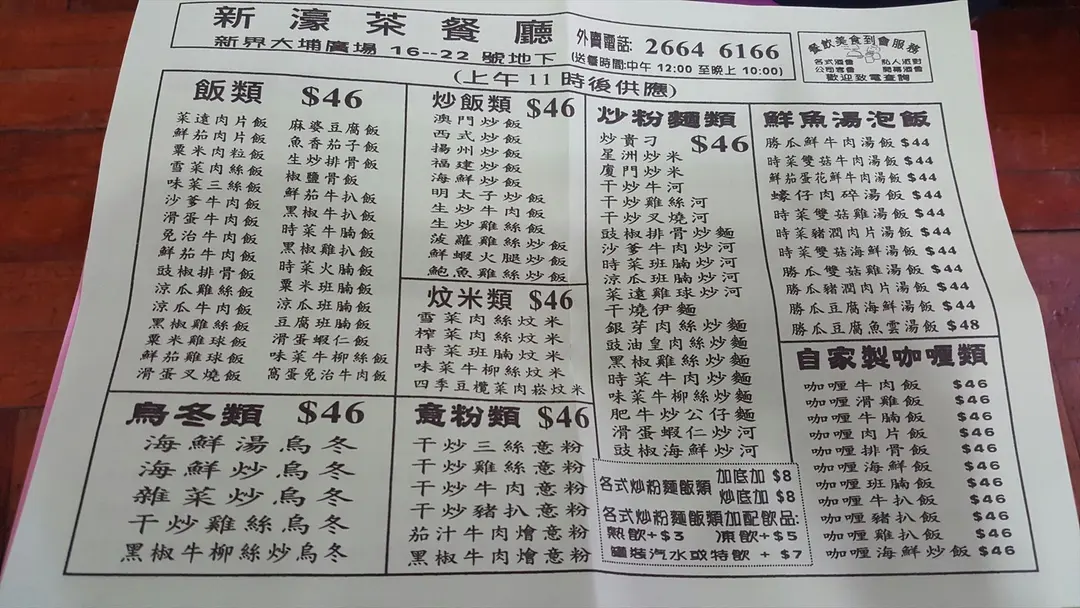 新濠茶餐廳
新界大埔廣場 16--22 號地下
外賣電話: 2664 6166
(送餐時間:中午 12:00 至晚上 10:00)
餐飲美食到會服務
各式酒會 私人派對
公司宴會 開幕酒會
歡迎致電查詢
(上午11時後供應)
飯類 $46
菜遠肉片飯
鮮茄肉片飯
粟米肉粒飯
雪菜肉絲飯
味菜三絲飯
沙爹牛肉飯
滑蛋牛肉飯
免治牛肉飯
鮮茄牛肉飯
豉椒排骨飯
涼瓜雞絲飯
涼瓜牛肉飯
黑椒雞絲飯
粟米雞球飯
鮮茄雞球飯
滑蛋叉燒飯
麻婆豆腐飯
魚香茄子飯
生炒排骨飯
椒鹽骨飯
鮮茄牛扒飯
黑椒牛扒飯
時菜牛腩飯
黑椒雞扒飯
時菜火腩飯
粟米班腩飯
涼瓜班腩飯
豆腐班腩飯
滑蛋蝦仁飯
味菜牛柳絲飯
窩蛋免治牛肉飯
炒飯類 $46
澳門炒飯
西式炒飯
揚州炒飯
福建炒飯
海鮮炒飯
明太子炒飯
生炒牛肉飯
生炒雞絲飯
菠蘿雞絲炒飯
鮮蝦火腿炒飯
鮑魚雞絲炒飯
炆米類 $46
雪菜肉絲炆米
榨菜肉絲炆米
時菜班腩炆米
味菜牛柳絲炆米
四季豆欖菜肉崧炆米
炒粉麵類
$46
炒貴刁
星洲炒米
廈門炒米
干炒牛河
干炒雞絲河
干炒叉燒河
豉椒排骨炒麵
沙爹牛肉炒河
時菜班腩炒河
涼瓜班腩炒河
菜遠雞球炒河
干燒伊麵
銀芽肉絲炒麵
豉油皇肉絲炒麵
黑椒雞絲炒麵
時菜牛肉炒麵
味菜牛柳絲炒麵
肥牛炒公仔麵
滑蛋蝦仁炒河
豉椒海鮮炒河
鮮魚湯泡飯
勝瓜鮮牛肉湯飯 $44
時菜雙菇牛肉湯飯 $44
鮮茄蛋花鮮牛肉湯飯 $44
蠔仔肉碎湯飯 $44
時菜雙菇雞湯飯 $44
時菜豬潤肉片湯飯 $44
時菜雙菇海鮮湯飯 $44
勝瓜雙菇雞湯飯 $44
勝瓜豬潤肉片湯飯 $44
勝瓜豆腐海鮮湯飯 $44
勝瓜豆腐魚雲湯飯 $48
自家製咖喱類
咖喱牛肉飯 $46
咖喱滑雞飯 $46
咖喱牛腩飯 $46
咖喱肉片飯 $46
咖喱排骨飯 $46
咖喱海鮮飯 $46
咖喱班腩飯 $46
咖喱牛扒飯 $46
咖喱豬扒飯 $46
咖喱雞扒飯 $46
咖喱海鮮炒飯 $46
烏冬類 $46
海鮮湯烏冬
海鮮炒烏冬
雜菜炒烏冬
干炒雞絲烏冬
黑椒牛柳絲炒烏冬
意粉類 $46
干炒三絲意粉
干炒雞絲意粉
干炒牛肉意粉
干炒豬扒意粉
茄汁牛肉燴意粉
黑椒牛肉燴意粉
各式炒粉麵飯類 加底加 $8
炒底加 $8
各式炒粉麵飯類加配飲品:
熱飲+$3 凍飲+$5
罐裝汽水或特飲 + $7